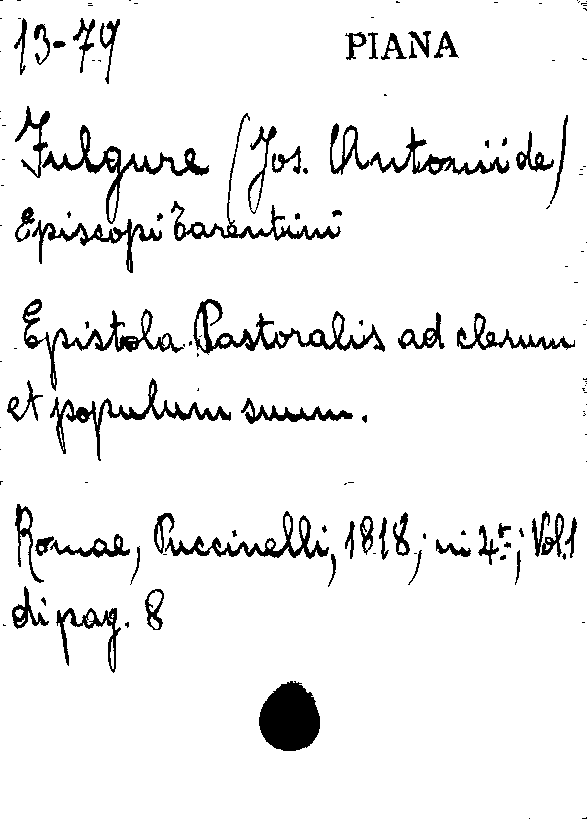 13-79 PIANA
Fulgure (Jos. Antonii de)
Episcopi Tarentini
Epistola Pastoralis ad clerum
et populum suum.
Romae, Puccinelli, 1818; in 4º; Vol. 1
di pag. 8